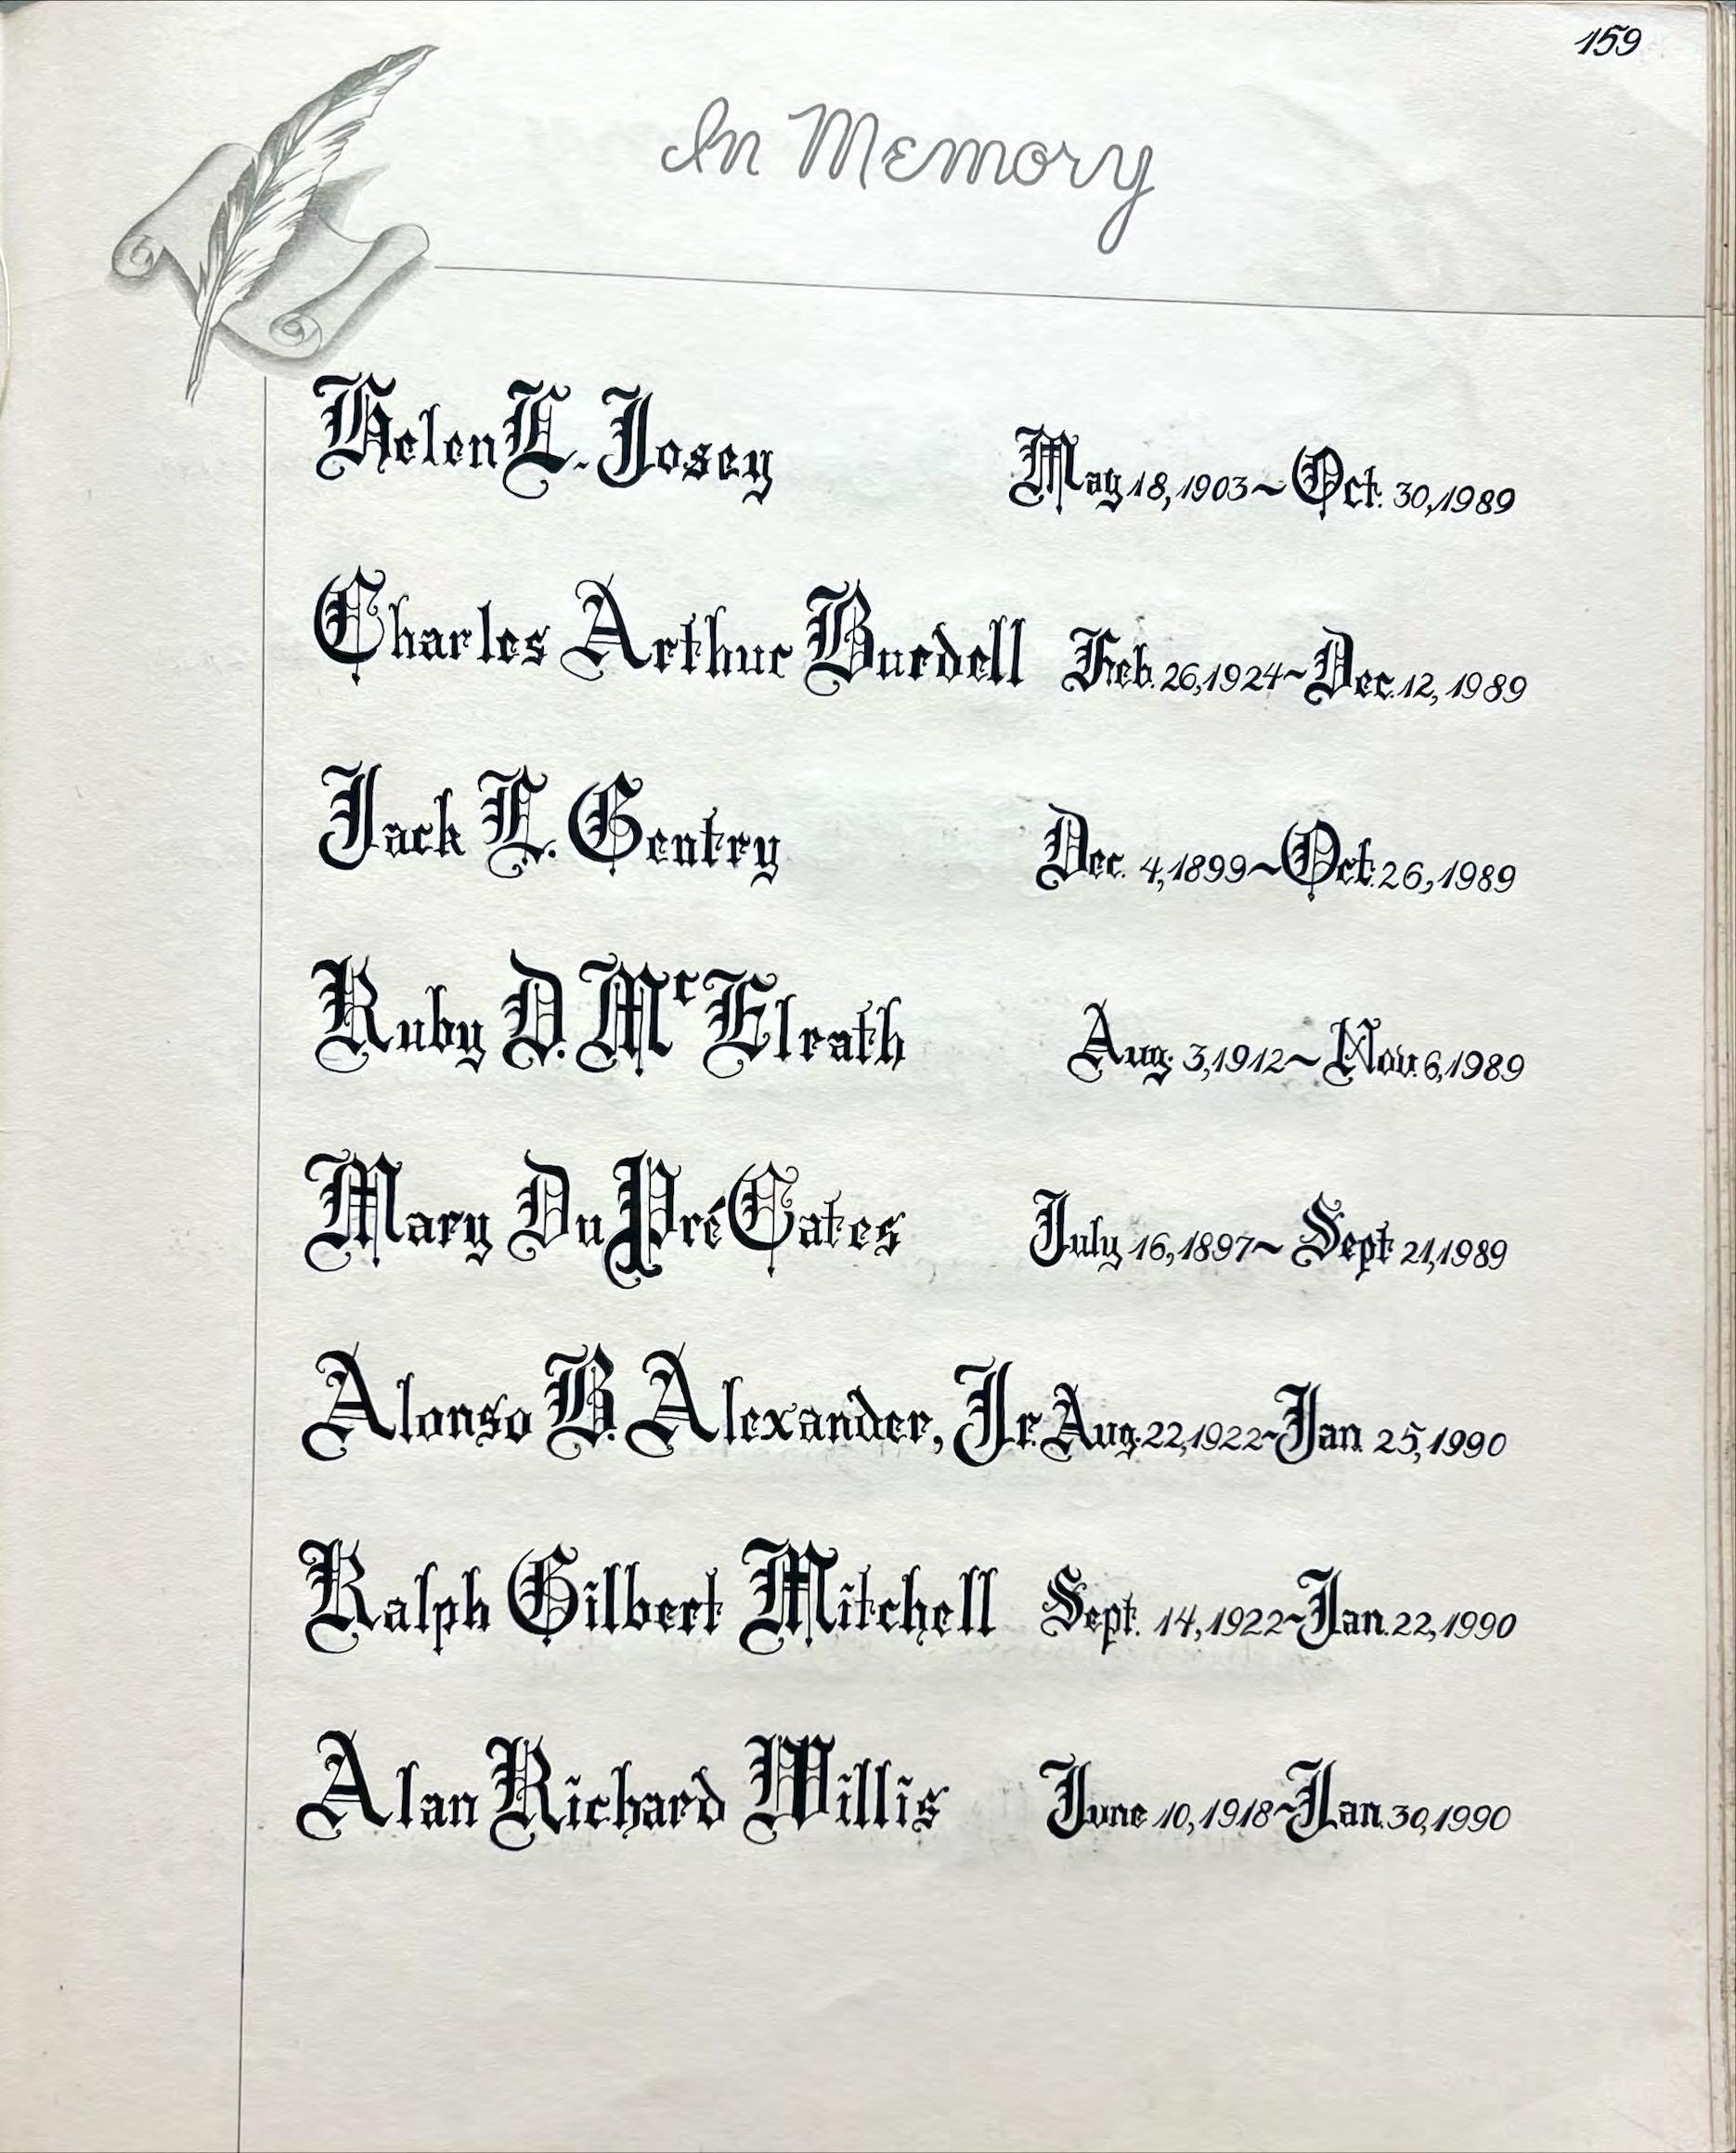 159
In Memory
Helen E. Josey May 18, 1903 ~ Oct. 30, 1989
Charles Arthur Burdell Feb. 26, 1924 ~ Dec. 12, 1989
Jack E. Gentry Dec. 4, 1899 ~ Oct. 26, 1989
Ruby D. McElrath Aug. 3, 1912 ~ Nov. 6, 1989
Mary DuPré Cates July 16, 1897 ~ Sept. 21, 1989
Alonso B. Alexander, Jr. Aug. 22, 1922 ~ Jan. 25, 1990
Ralph Gilbert Mitchell Sept. 14, 1922 ~ Jan. 22, 1990
Alan Richard Willis June 10, 1918 ~ Jan. 30, 1990